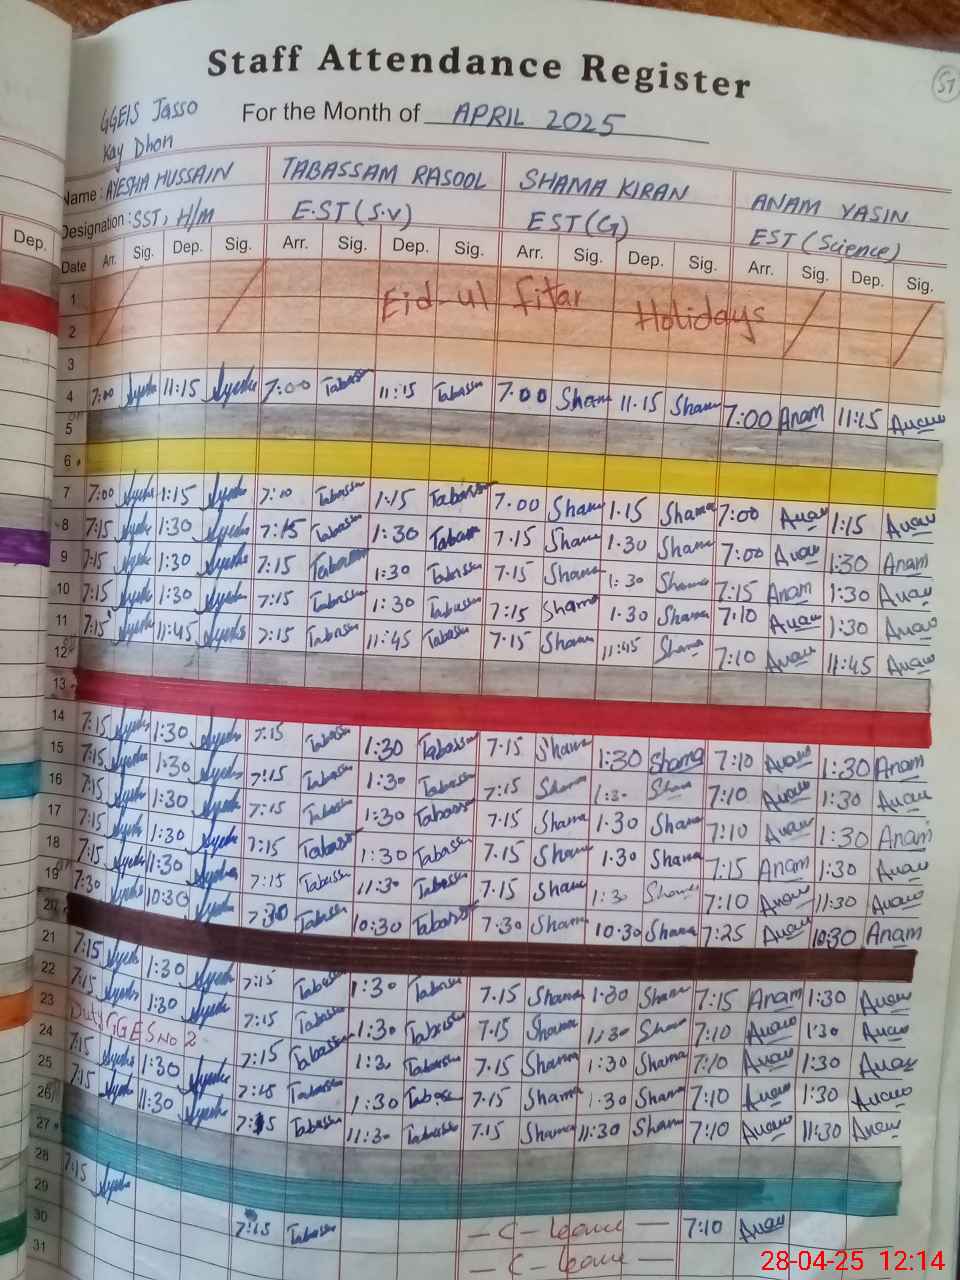 Staff Attendance Register
51
GGEIS Jasso
Kay Dhon
For the Month of APRIL 2025
Name: AYESHA HUSSAIN TABASSAM RASOOL SHAMA KIRAN ANAM YASIN
Designation: SST, H/M E.ST (S.V) EST (G) EST (Science)
Dep.
Date Arr. Sig. Dep. Sig. Arr. Sig. Dep. Sig. Arr. Sig. Dep. Sig. Arr. Sig. Dep. Sig.
1 Eid-ul fitar Holidays
2
3
4 7:00 Ayesha 11:15 Ayesha 7:00 Tabassum 11:15 Tabassum 7.00 Shama 11.15 Shama 7:00 Anam 11:15 Anam
5
6
7 7:00 Ayesha 1:15 Ayesha 7:00 Tabassum 1:15 Tabassum 7.00 Shama 1.15 Shama 7:00 Anam 1:15 Anam
8 7:15 Ayesha 1:30 Ayesha 7:15 Tabassum 1:30 Tabassum 7.15 Shama 1.30 Shama 7:00 Anam 1:30 Anam
9 7:15 Ayesha 1:30 Ayesha 7:15 Tabassum 1:30 Tabassum 7.15 Shama 1:30 Shama 7:15 Anam 1:30 Anam
10 7:15 Ayesha 1:30 Ayesha 7:15 Tabassum 1:30 Tabassum 7:15 Shama 1.30 Shama 7:10 Anam 1:30 Anam
11 7:15 Ayesha 11:45 Ayesha 7:15 Tabassum 11:45 Tabassum 7.15 Shama 11:45 Shama 7:10 Anam 11:45 Anam
12
13
14 7:15 Ayesha 1:30 Ayesha 7:15 Tabassum 1:30 Tabassum 7.15 Shama 1:30 Shama 7:10 Anam 1:30 Anam
15 7:15 Ayesha 1:30 Ayesha 7:15 Tabassum 1:30 Tabassum 7:15 Shama 1:30 Shama 7:10 Anam 1:30 Anam
16 7:15 Ayesha 1:30 Ayesha 7:15 Tabassum 1:30 Tabassum 7.15 Shama 1.30 Shama 7:10 Anam 1:30 Anam
17 7:15 Ayesha 1:30 Ayesha 7:15 Tabassum 1:30 Tabassum 7.15 Shama 1.30 Shama 7:15 Anam 1:30 Anam
18 7:15 Ayesha 11:30 Ayesha 7:15 Tabassum 11:30 Tabassum 7.15 Shama 1:30 Shama 7:10 Anam 11:30 Anam
19 7:30 Ayesha 10:30 Ayesha 7:30 Tabassum 10:30 Tabassum 7.30 Shama 10:30 Shama 7:25 Anam 10:30 Anam
20
21 7:15 Ayesha 1:30 Ayesha 7:15 Tabassum 1:30 Tabassum 7.15 Shama 1:30 Shama 7:15 Anam 1:30 Anam
22 7:15 Ayesha 1:30 Ayesha 7:15 Tabassum 1:30 Tabassum 7.15 Shama 1:30 Shama 7:10 Anam 1:30 Anam
23 Duty GGES No 2 7:15 Tabassum 1:30 Tabassum 7.15 Shama 1:30 Shama 7:10 Anam 1:30 Anam
24 7:15 Ayesha 1:30 Ayesha 7:15 Tabassum 1:30 Tabassum 7.15 Shama 1:30 Shama 7:10 Anam 1:30 Anam
25 7:15 Ayesha 11:30 Ayesha 7:15 Tabassum 11:30 Tabassum 7.15 Shama 11:30 Shama 7:10 Anam 11:30 Anam
26
27
28 7:15 Ayesha 7:15 Tabassum - C - leave - 7:10 Anam
29 - C - leave -
30
31
28-04-25 12:14